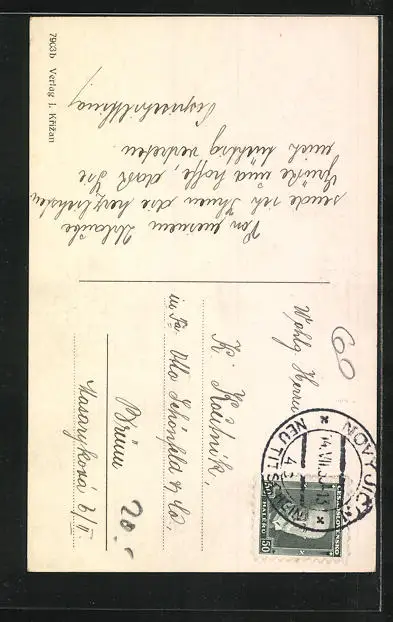 7903b Verlag J. Křižan
Von meinem Urlaube
sende ich Ihnen die herzlichsten
Grüße und hoffe, daß Sie
mich tüchtig vertreten.
60
Wohlg. Herrn
K. Koutník,
in Fa. Otto Schönfeld & Co.
Brünn
Masaryková 6/II
20.-
NOVÝ JIČÍN
NEU TITSCHEIN
ČESKOSLOVENSKO
50
HALÉŘŮ